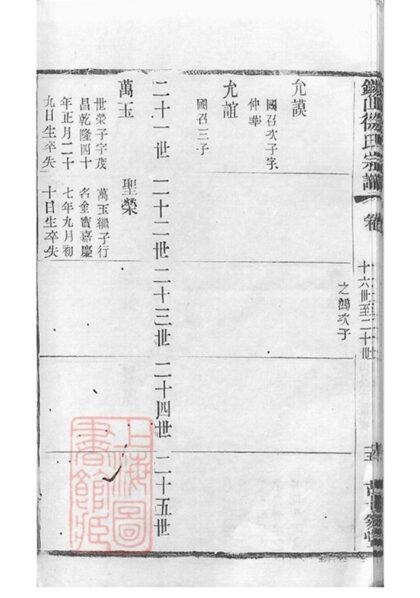 氏宗譜
卷
十六世至二十世
之鷂次子
允謨
國召次子字
仲華
允誼
國召三子
二十一世 二十二世 二十三世 二十四世 二十五世
萬玉
世榮子字茂
昌乾隆四十
年正月二十
九日生卒失
聖榮
萬玉繼子行
名金寶嘉慶
七年九月初
十日生卒失
上海圖
書館藏